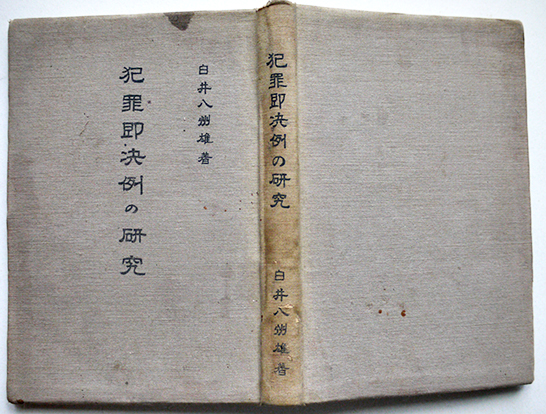 犯罪即決例の研究
白井八州雄著
犯罪即決例の研究
白井八州雄著